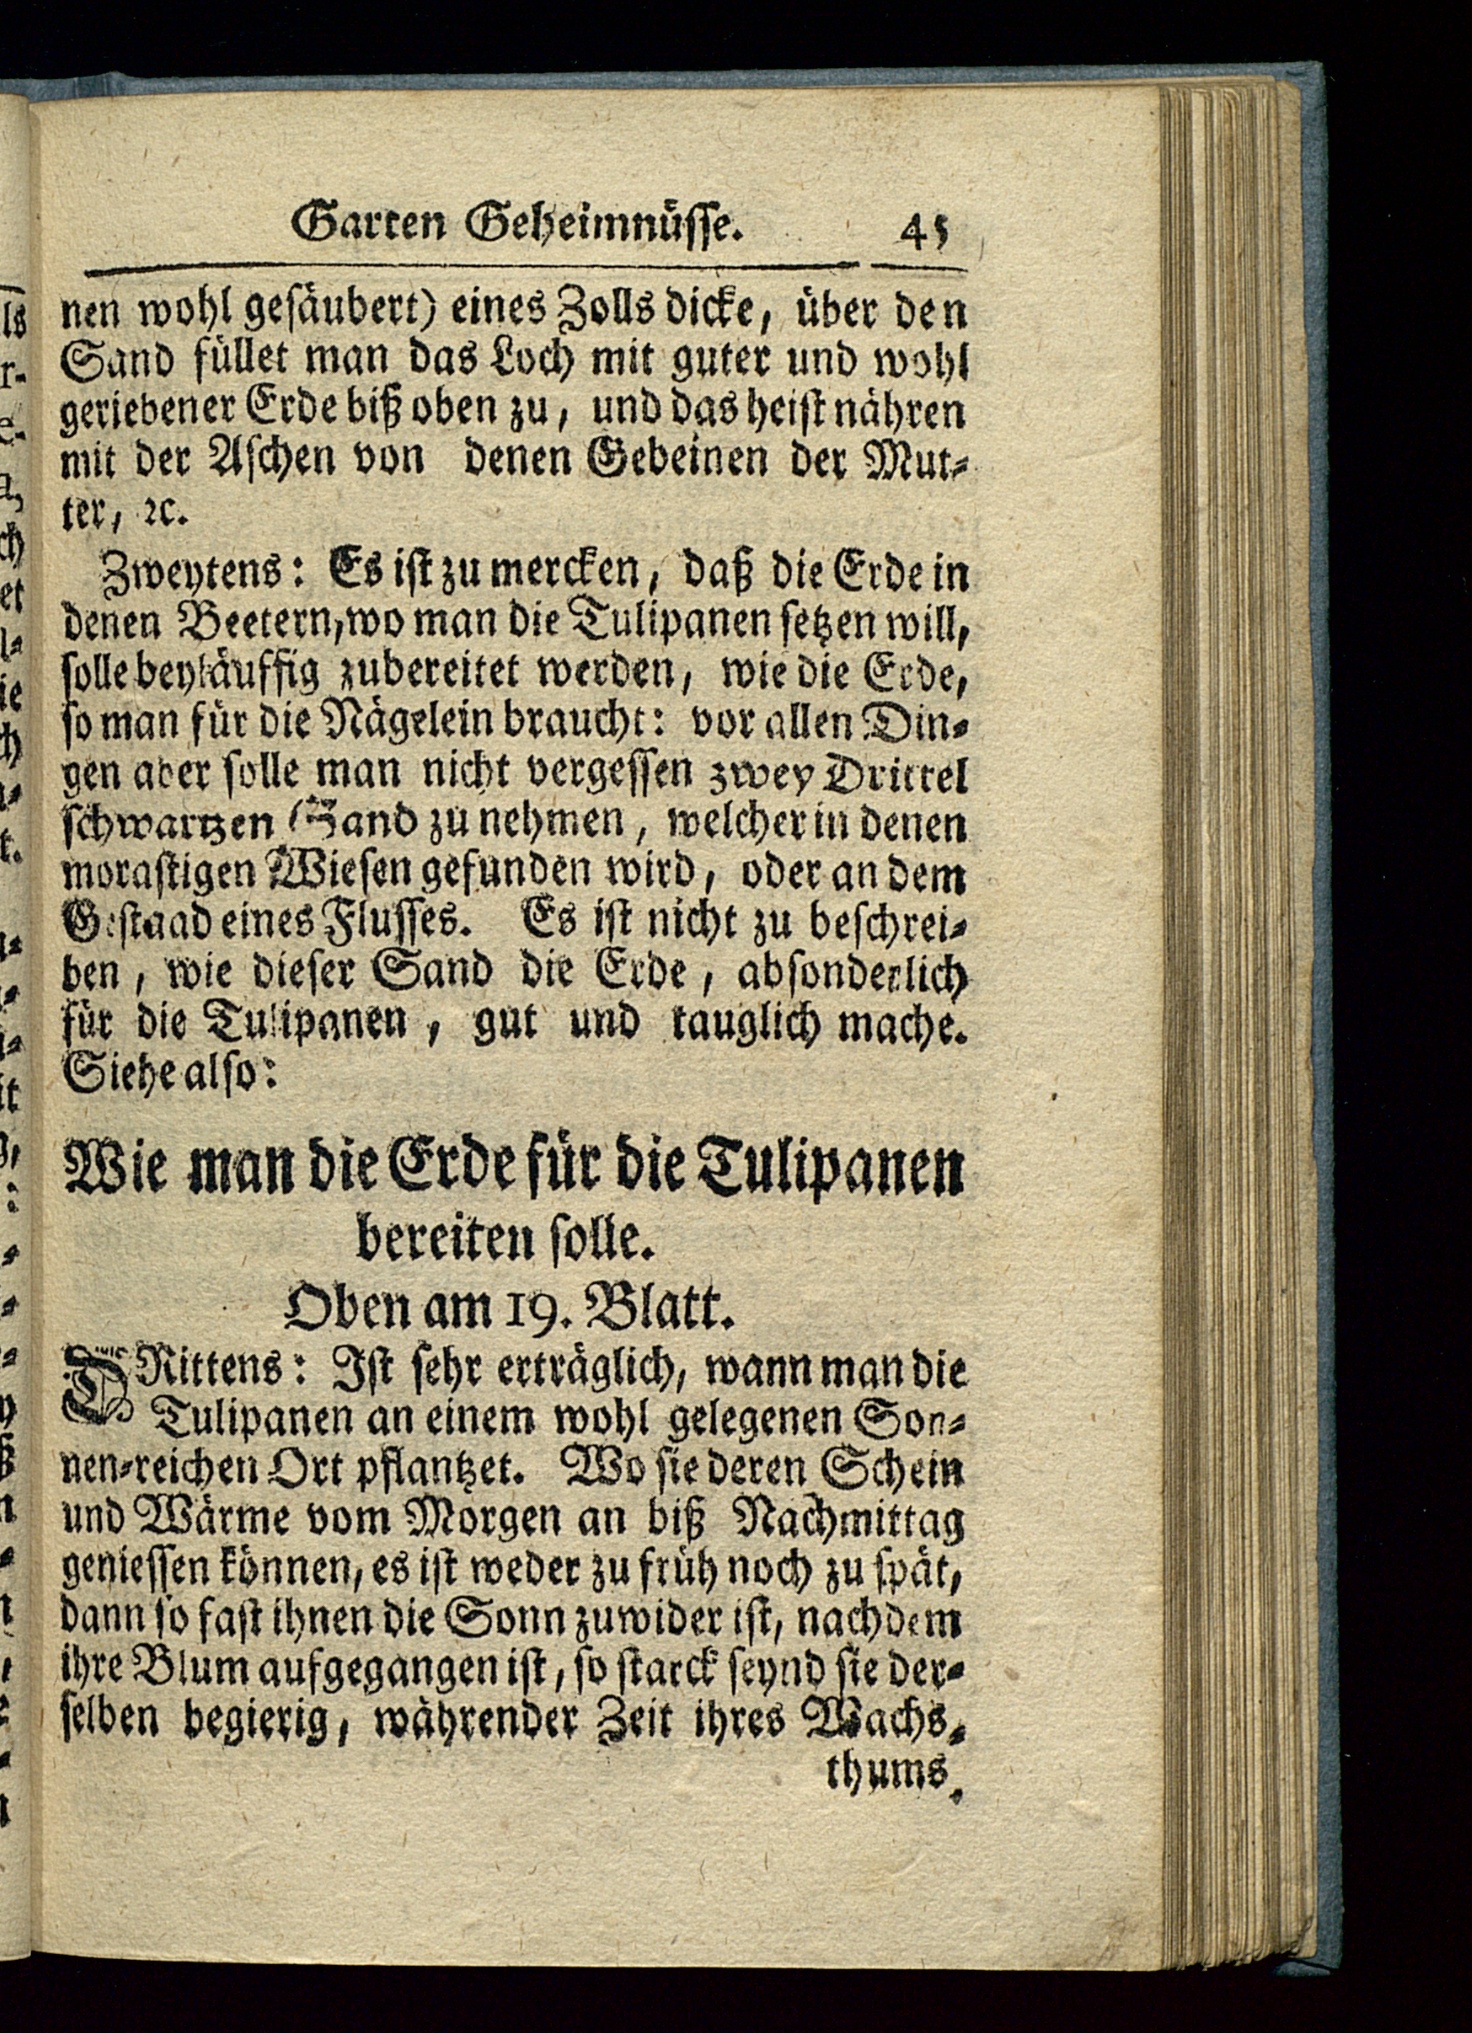 Garten Geheimnüsse. 45
nen wohl gesäubert) eines Zolls dicke, über den
Sand füllet man das Loch mit guter und wohl
geriebener Erde biß oben zu, und das heist nähren
mit der Aschen von denen Gebeinen der Mut⸗
ter, ꝛc.
Zweytens: Es ist zu mercken, daß die Erde in
denen Beetern, wo man die Tulipanen setzen will,
solle beyläuffig zubereitet werden, wie die Erde,
so man für die Nägelein braucht: vor allen Din⸗
gen aber solle man nicht vergessen zwey Drittel
schwartzen Sand zu nehmen, welcher in denen
morastigen Wiesen gefunden wird, oder an dem
Gestaad eines Flusses. Es ist nicht zu beschrei⸗
ben, wie dieser Sand die Erde, absonderlich
für die Tulipanen, gut und tauglich mache.
Siehe also:
Wie man die Erde für die Tulipanen
bereiten solle.
Oben am 19. Blatt.
DRittens: Ist sehr erträglich, wann man die
Tulipanen an einem wohl gelegenen Son⸗
nen⸗reichen Ort pflantzet. Wo sie deren Schein
und Wärme vom Morgen an biß Nachmittag
geniessen können, es ist weder zu früh noch zu spät,
dann so fast ihnen die Sonn zuwider ist, nachdem
ihre Blum aufgegangen ist, so starck seynd sie der⸗
selben begierig, währender Zeit ihres Wachs⸗
thums